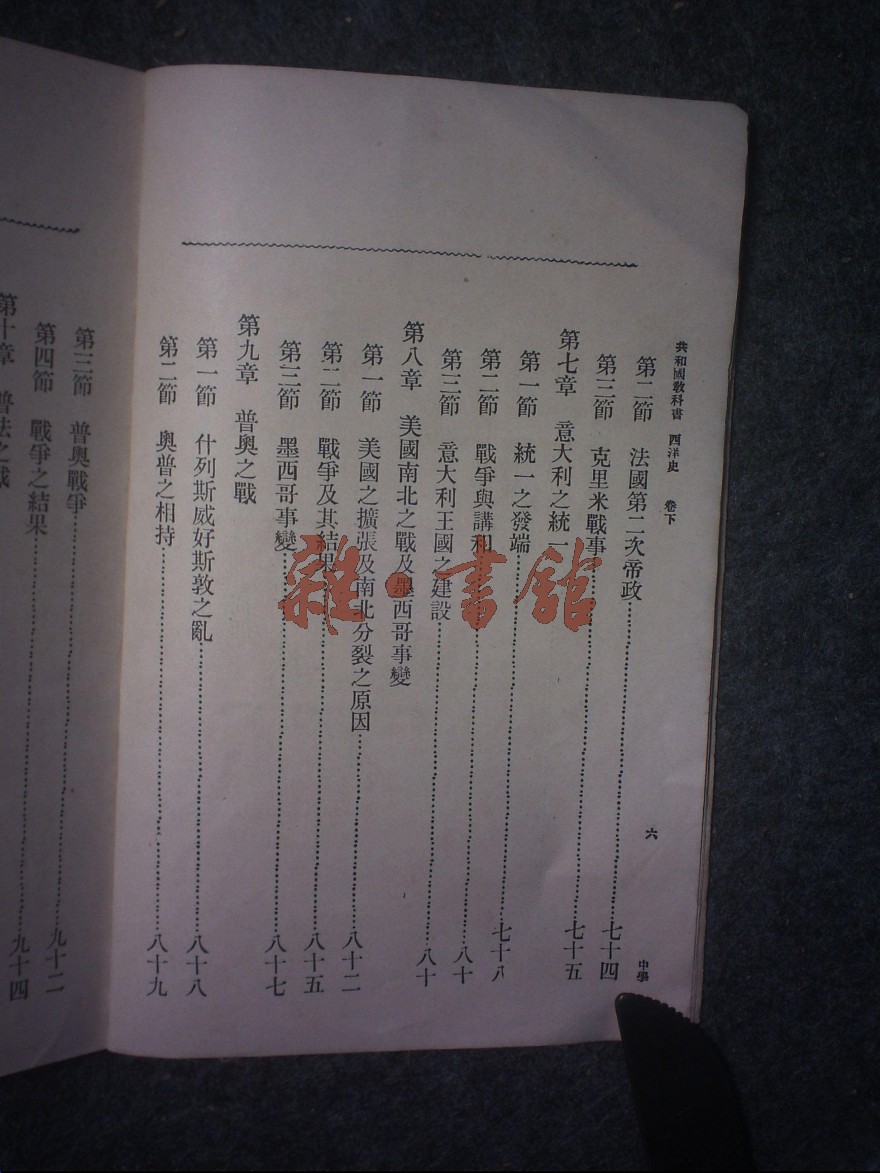 共和國敎科書 西洋史 卷下 六 中學
第二節 法國第二次帝政 七十四
第三節 克里米戰事 七十五
第七章 意大利之統一
第一節 統一之發端 七十八
第二節 戰爭與講和 八十
第三節 意大利王國之建設 八十
第八章 美國南北之戰及墨西哥事變
第一節 美國之擴張及南北分裂之原因 八十二
第二節 戰爭及其結果 八十五
第三節 墨西哥事變 八十七
第九章 普奧之戰
第一節 什列斯威好斯敦之亂 八十八
第二節 奧普之相持 八十九
第三節 普奧戰爭 九十二
第四節 戰爭之結果 九十四
第十章 普法之戰
雜·書館